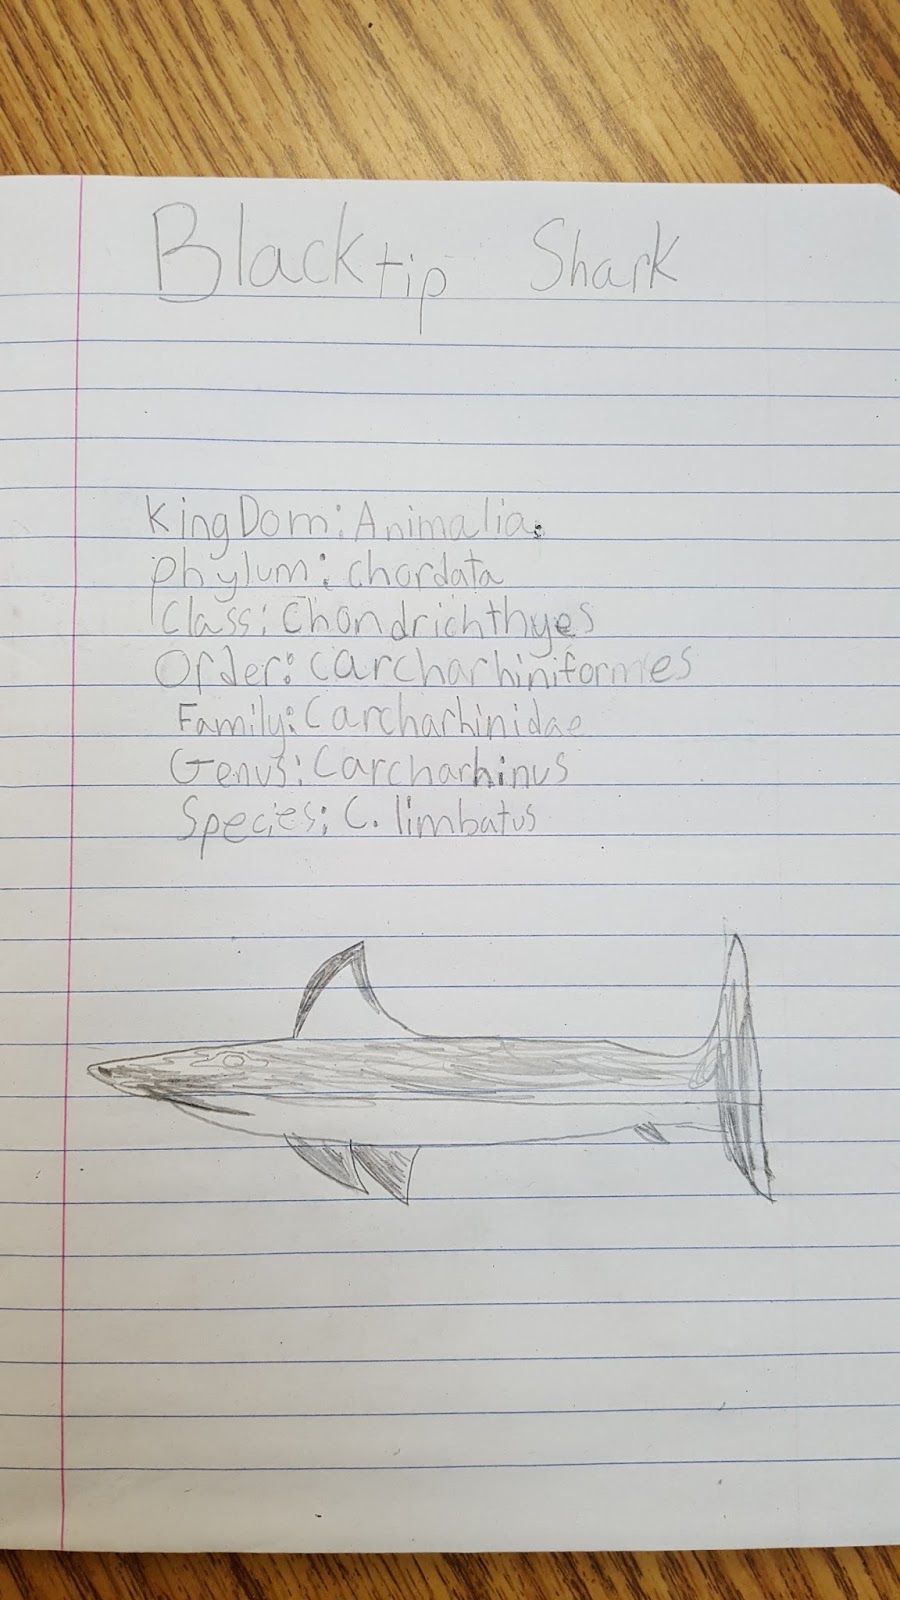 Blacktip Shark
KingDom: Animalia.
Phylum: chordata
Class: Chondrichthyes
Order: carcharhiniformes
Family: Carcharhinidae
Genus: Carcharhinus
Species: C. limbatus